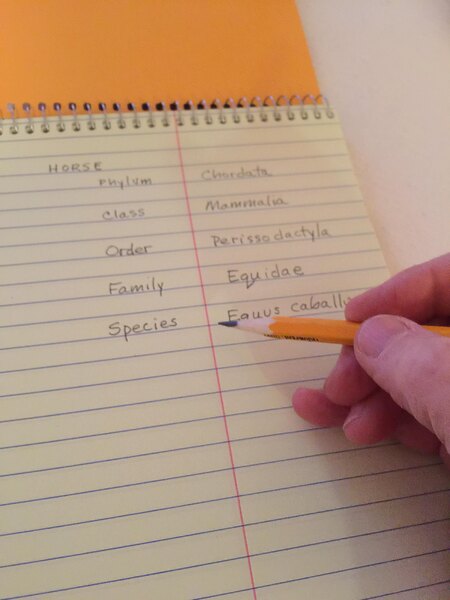 HORSE
Phylum Chordata
Class Mammalia
Order Perissodactyla
Family Equidae
Species Equus